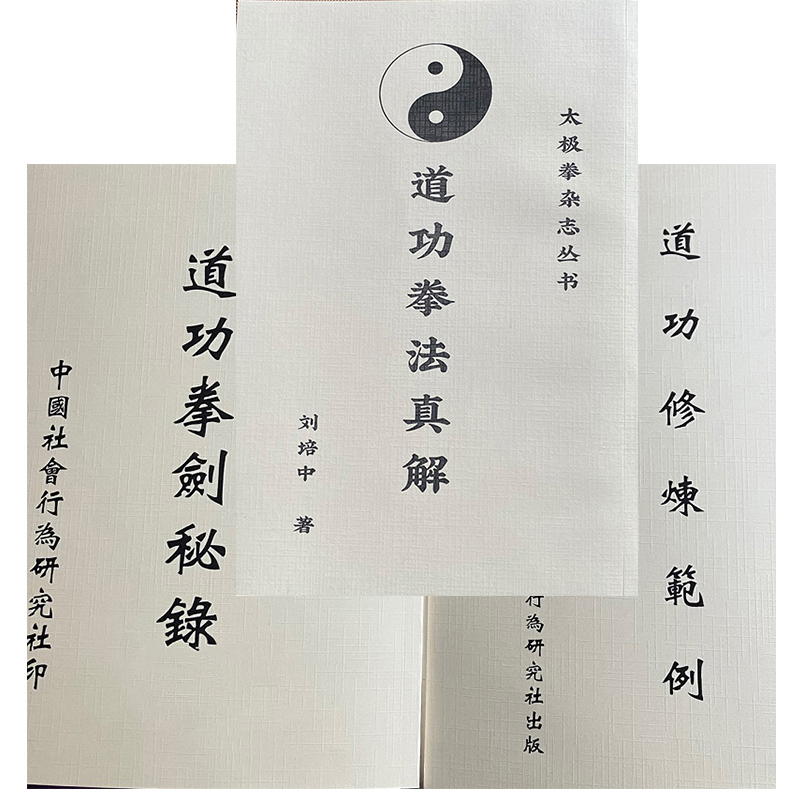 太极拳杂志丛书
道功拳法真解
刘培中 著
道功拳劍秘錄
中國社會行為研究社印
道功修煉範例
行為研究社出版